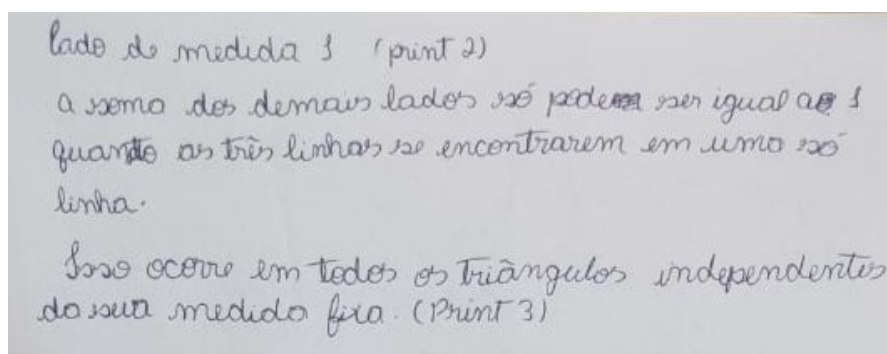 lado de medida 1 (print 2)
a soma dos demais lados só podem ser igual ao 1
quanto as três linhas se encontrarem em uma só
linha.
Isso ocorre em todos os triângulos independentes
da sua medida fixa. (Print 3)